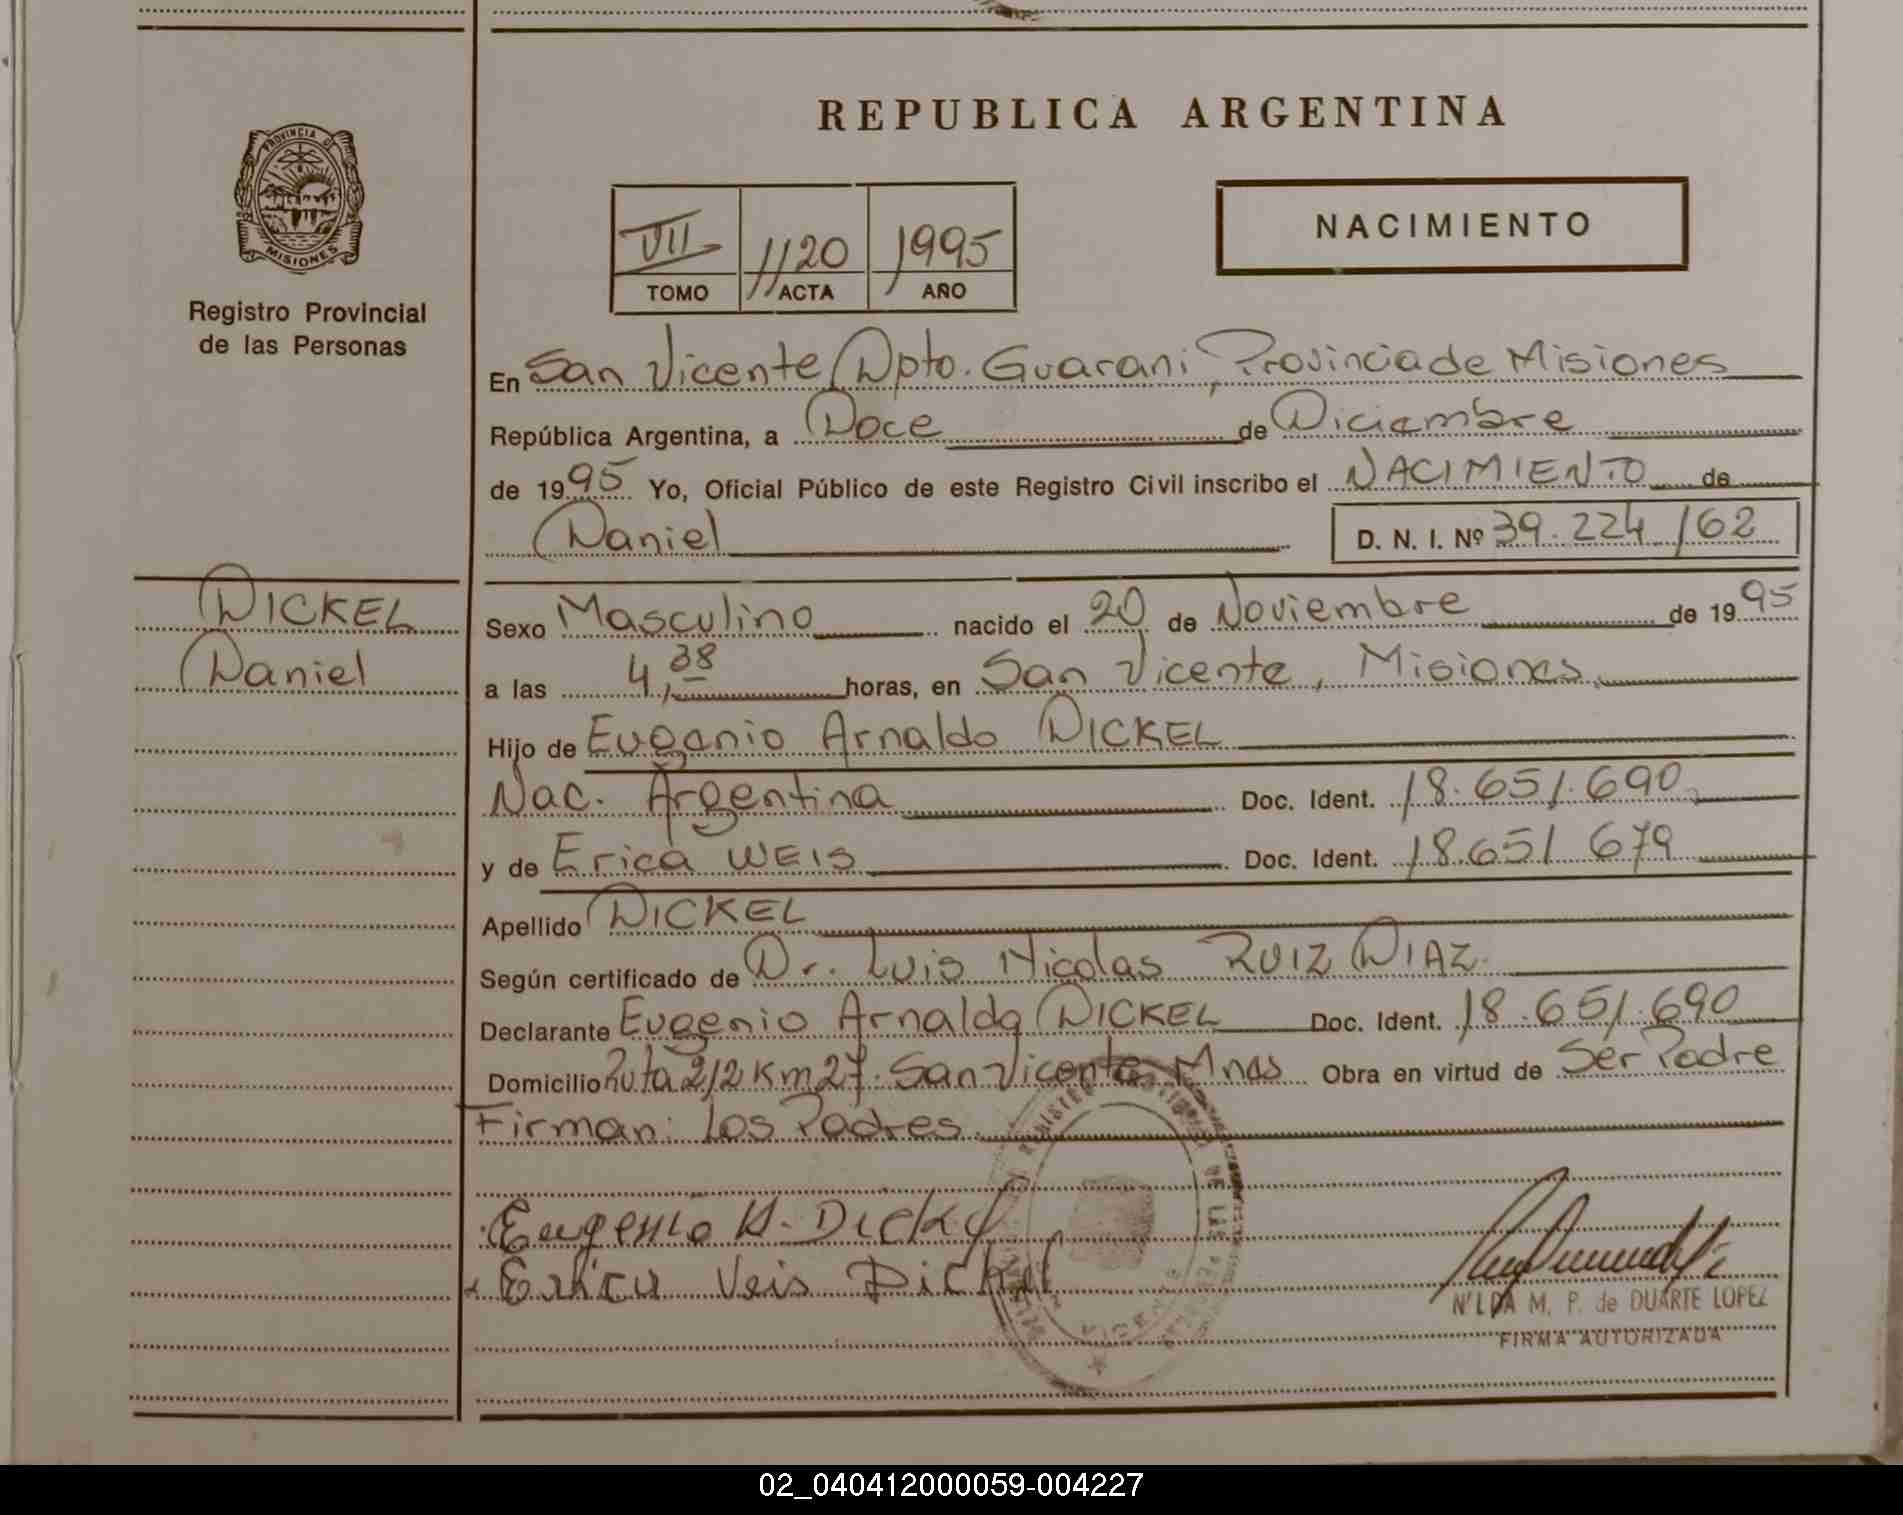 PROVINCIA DE
MISIONES
Registro Provincial
de las Personas
DICKEL
Daniel
REPUBLICA ARGENTINA
VII 1120 1995
TOMO ACTA AÑO
NACIMIENTO
En San Vicente, Dpto. Guarani, Provincia de Misiones
República Argentina, a Doce de Diciembre
de 1995 Yo, Oficial Público de este Registro Civil inscribo el NACIMIENTO de
Daniel D. N. I. Nº 39.224.162
Sexo Masculino nacido el 20 de Noviembre de 1995
a las 4,38 horas, en San Vicente, Misiones
Hijo de Eugenio Arnaldo DICKEL
Nac. Argentina Doc. Ident. 18.651.690
y de Erica WEIS Doc. Ident. 18.651 679
Apellido DICKEL
Según certificado de Dr. Luis Nicolas RUIZ DIAZ.
Declarante Eugenio Arnaldo DICKEL Doc. Ident. 18.651.690
Domicilio Ruta 212 Km 27. San Vicente Mnes Obra en virtud de Ser Padre
Firman: Los Padres.
Eugenio A. Dickel
Erica Veis Dickel
N'LDA M. P. de DUARTE LOPEZ
FIRMA AUTORIZADA
02_040412000059-004227